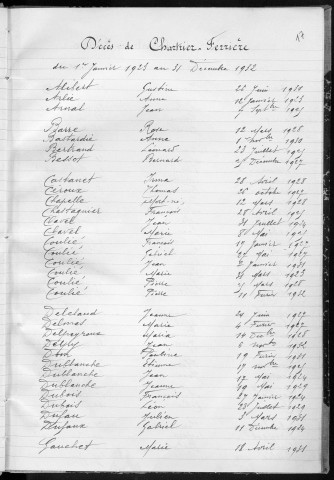 Décès de Chartrier-Ferrière
du 1er Janvier 1923 au 31 Décembre 1932
Alibert Justine 22 Juin 1931
Arlie Anna 12 Janvier 1923
Arnal Jean 1925
Barre Rosa 12 Mars 1928
Bastardie Anne 1930
Bertrand Léonard 23 Juillet 1925
Bessot Bernard Décembre 1927
Castanet Irma 26 Avril 1928
Ceroux Thomas 26 octobre 1927
Chapelle 12 Mars 1928
Chastagnier François 28 Avril 1925
Clavel Jean Juillet 1924
Clavel Marie Mai 1925
Coutié François 19 Janvier 1927
Coutié Gabriel Mai 1927
Coutié Jean Janvier 1931
Coutié Marie Mars 1923
Coutié Pierre Mars 1928
Coutié Pierre 11 Février 1932
Delclaud Jeanne 20 Juin 1922
Delmas Maria 6 Février 1927
Delpeyroux Maria 1928
Delpy Jean 1932
Pauline 19 Février 1931
Dublanche Etienne 1925
Dublanche Jean 17 Mai 1924
Dublanche Jeanne Mai 1929
Dubois François 27 Janvier 1924
Dubois Léon 23 Juillet 1929
Dufour Julien Mars 1931
Dufaux Gabriel 11 Décembre 1924
Gauchet Marie 18 Avril 1931